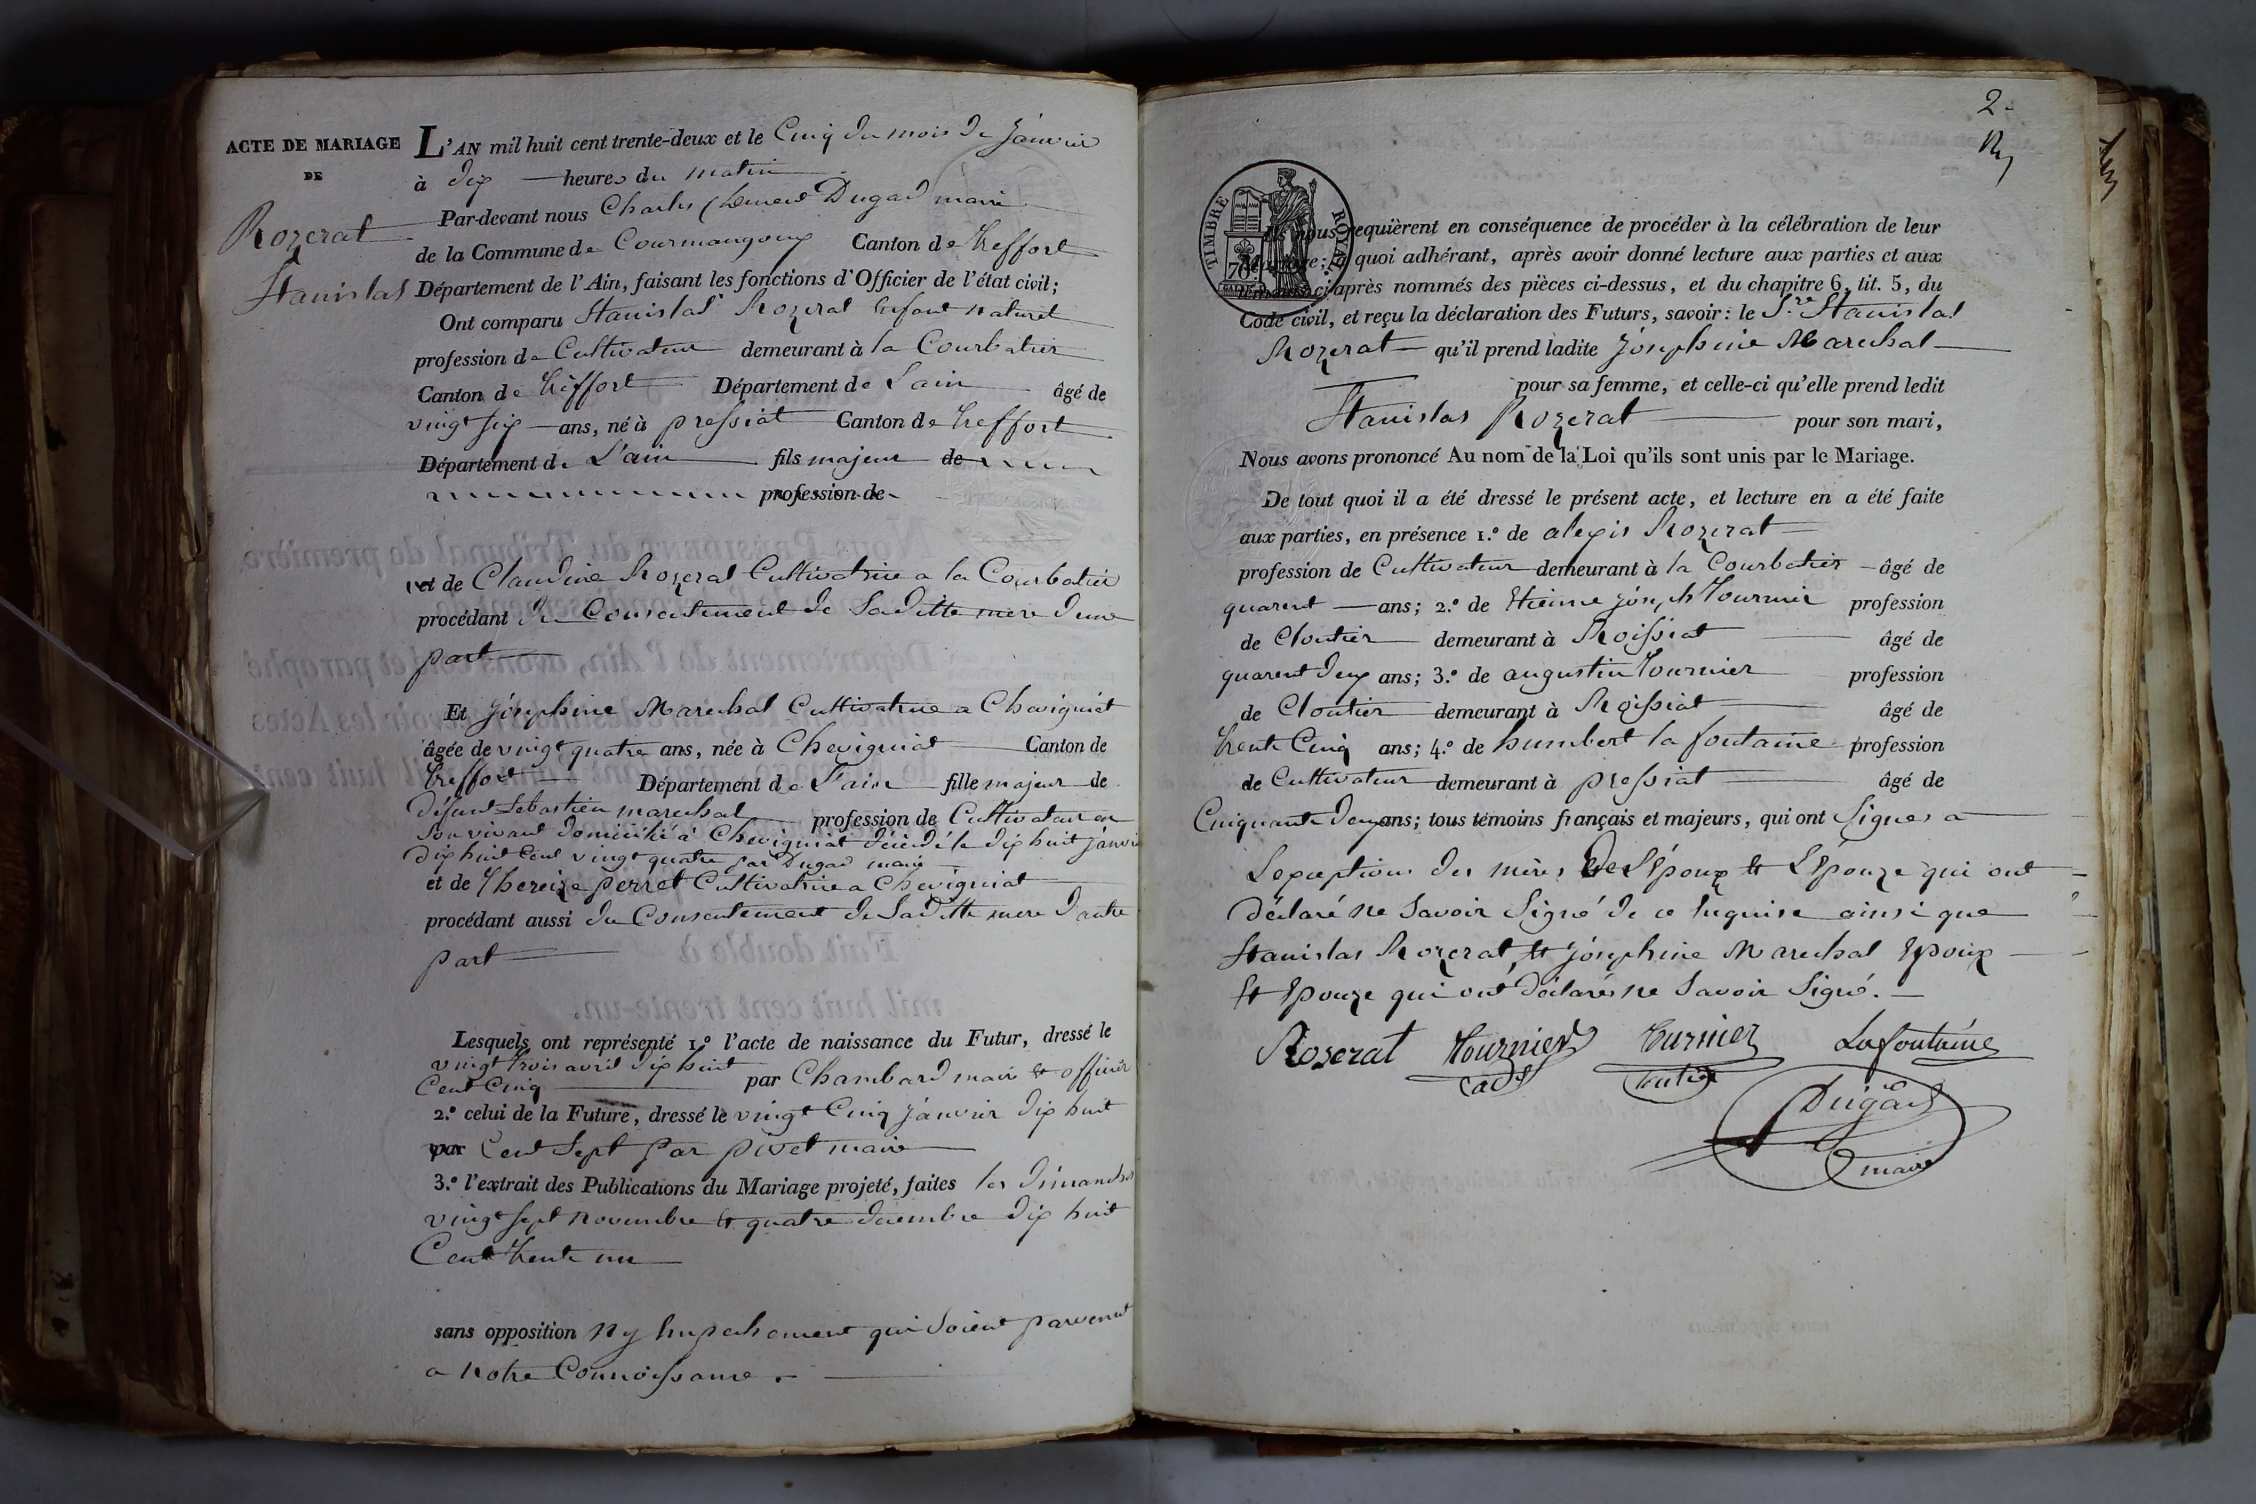 ACTE DE MARIAGE
DE
Rozerat
Stanislas
L'AN mil huit cent trente-deux et le Cinq du mois de Janvier
à dix heures du matin
Par-devant nous Charles Dugad maire
de la Commune de Courmangoux Canton de treffort
Département de l'Ain, faisant les fonctions d'Officier de l'état civil;
Ont comparu Stanislas Rozerat Enfant naturel
profession de Cultivateur demeurant à la Courbatier
Canton de treffort Département de Lain âgé de
vingt six ans, né à pressiat Canton de treffort
Département de L'ain fils majeur de
profession de
et de Claudine Rozerat Cultivatrice a la Courbatier
procédant du Consentement de Saditte mere d'une
part
Et Joséphine Marechal Cultivatrice a Chevigniat
âgée de vingt quatre ans, née à Chevigniat Canton de
treffort Département de Lain fille majeur de
défunt Sebastien marechal profession de Cultivateur en
Son vivant domicilié à Chevigniat décédé le dix huit janvier
dix huit Cent vingt quatre par Dugad maire
et de thereize perret Cultivatrice a Chevigniat
procédant aussi du Consentement de Saditte mere d'autre
part
Lesquels ont représenté 1.º l'acte de naissance du Futur, dressé le
vingt trois avril dix huit
Cent Cinq par Chambard maire et officier
2.º celui de la Future, dressé le vingt Cinq janvier dix huit
par Cent Sept par pivet maire
3.º l'extrait des Publications du Mariage projeté, faites les dimanches
vingt sept novembre et quatre decembre dix huit
Cent trente un
sans opposition ny Empechement qui Soient parvenut
a notre Connoissance.
2.
TIMBRE ROYAL
70
Ils nous requièrent en conséquence de procéder à la célébration de leur
Mariage; à quoi adhérant, après avoir donné lecture aux parties et aux
témoins ci-après nommés des pièces ci-dessus, et du chapitre 6, tit. 5, du
Code civil, et reçu la déclaration des Futurs, savoir: le S.r Stanislas
Rozerat qu'il prend ladite Joséphine Marechal
pour sa femme, et celle-ci qu'elle prend ledit
Stanislas Rozerat pour son mari,
Nous avons prononcé Au nom de la Loi qu'ils sont unis par le Mariage.
De tout quoi il a été dressé le présent acte, et lecture en a été faite
aux parties, en présence 1.º de alexis Rozerat
profession de Cultivateur demeurant à la Courbatier âgé de
quarent ans; 2.º de Etienne joseph tournier profession
de Cloutier demeurant à Roissiat âgé de
quarent deux ans; 3.º de augustin tournier profession
de Cloutier demeurant à Roissiat âgé de
trente Cinq ans; 4.º de humbert la fontaine profession
de Cultivateur demeurant à pressiat âgé de
Cinquante deux ans; tous témoins français et majeurs, qui ont Signés a
Lexception des mères de L'Epoux et L'Epouze qui ont
déclaré ne Savoir Signé de ce Enquise ainsi que
Stanislas Rozerat et joséphine Marechal Epoux
Et Epouze qui ont déclarés ne Savoir Signé.
Roserat tournier turnier Lafontaine
Dugad
maire